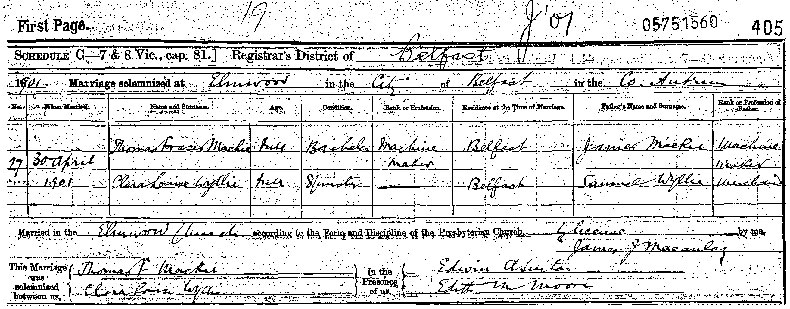 19 J '01
First Page. 05751560 405
SCHEDULE C—7 & 8 Vic., cap. 81.] Registrar's District of Belfast
1901 Marriage solemnized at Elmwood in the City of Belfast in the Co. Antrim
No. When Married. Name and Surname. Age. Condition. Rank or Profession. Residence at the Time of Marriage. Father's Name and Surname. Rank or Profession of Father.
Thomas Mackie Full Bachelor Machine Belfast James Mackie Machine
27 30 April Maker Maker
1901 Clara Louise Wyllie Full Spinster — Belfast Samuel Wyllie Merchant
Married in the Elmwood Church according to the Form and Discipline of the Presbyterian Church, by License by me,
James J Macaulay
This Marriage was solemnized between us, Thomas F Mackie In the Presence of us, Edwin
Clara Louise Wyllie Edith M Moore